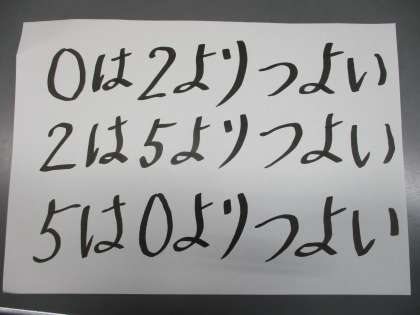 0は2よりつよい
2は5よりつよい
5は0よりつよい